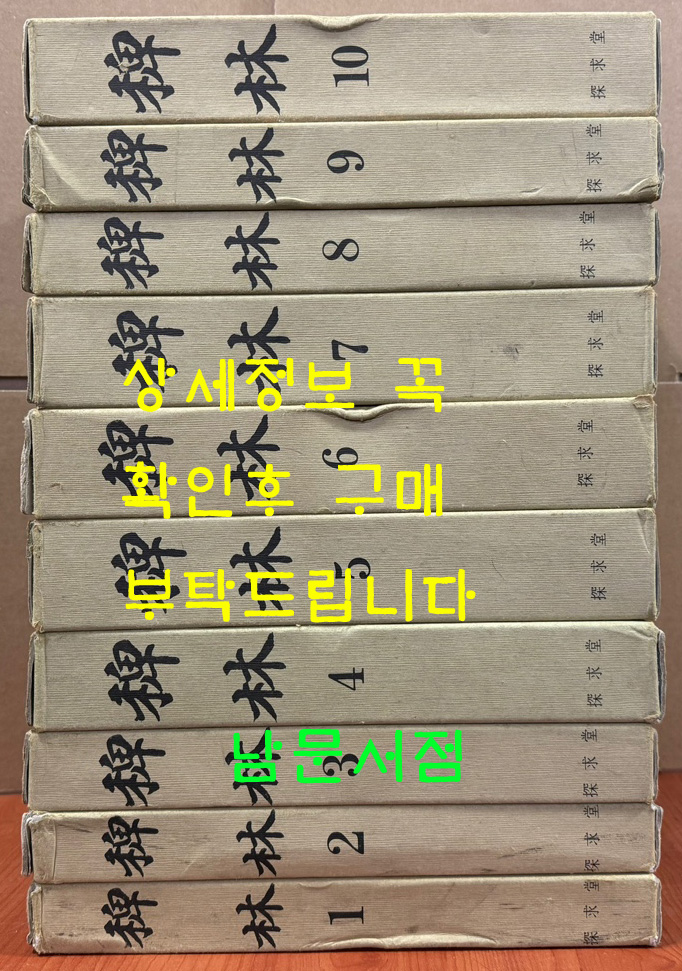 稗 林 10 探求堂
稗 林 9 探求堂
稗 林 8 探求堂
稗 林 7 探求堂
상세정보 꼭
稗 林 6 探求堂
확인후 구매
稗 林 5 探求堂
부탁드립니다
稗 林 4 探求堂
稗 林 3 探求堂
남문서점
稗 林 2 探求堂
稗 林 1 探求堂